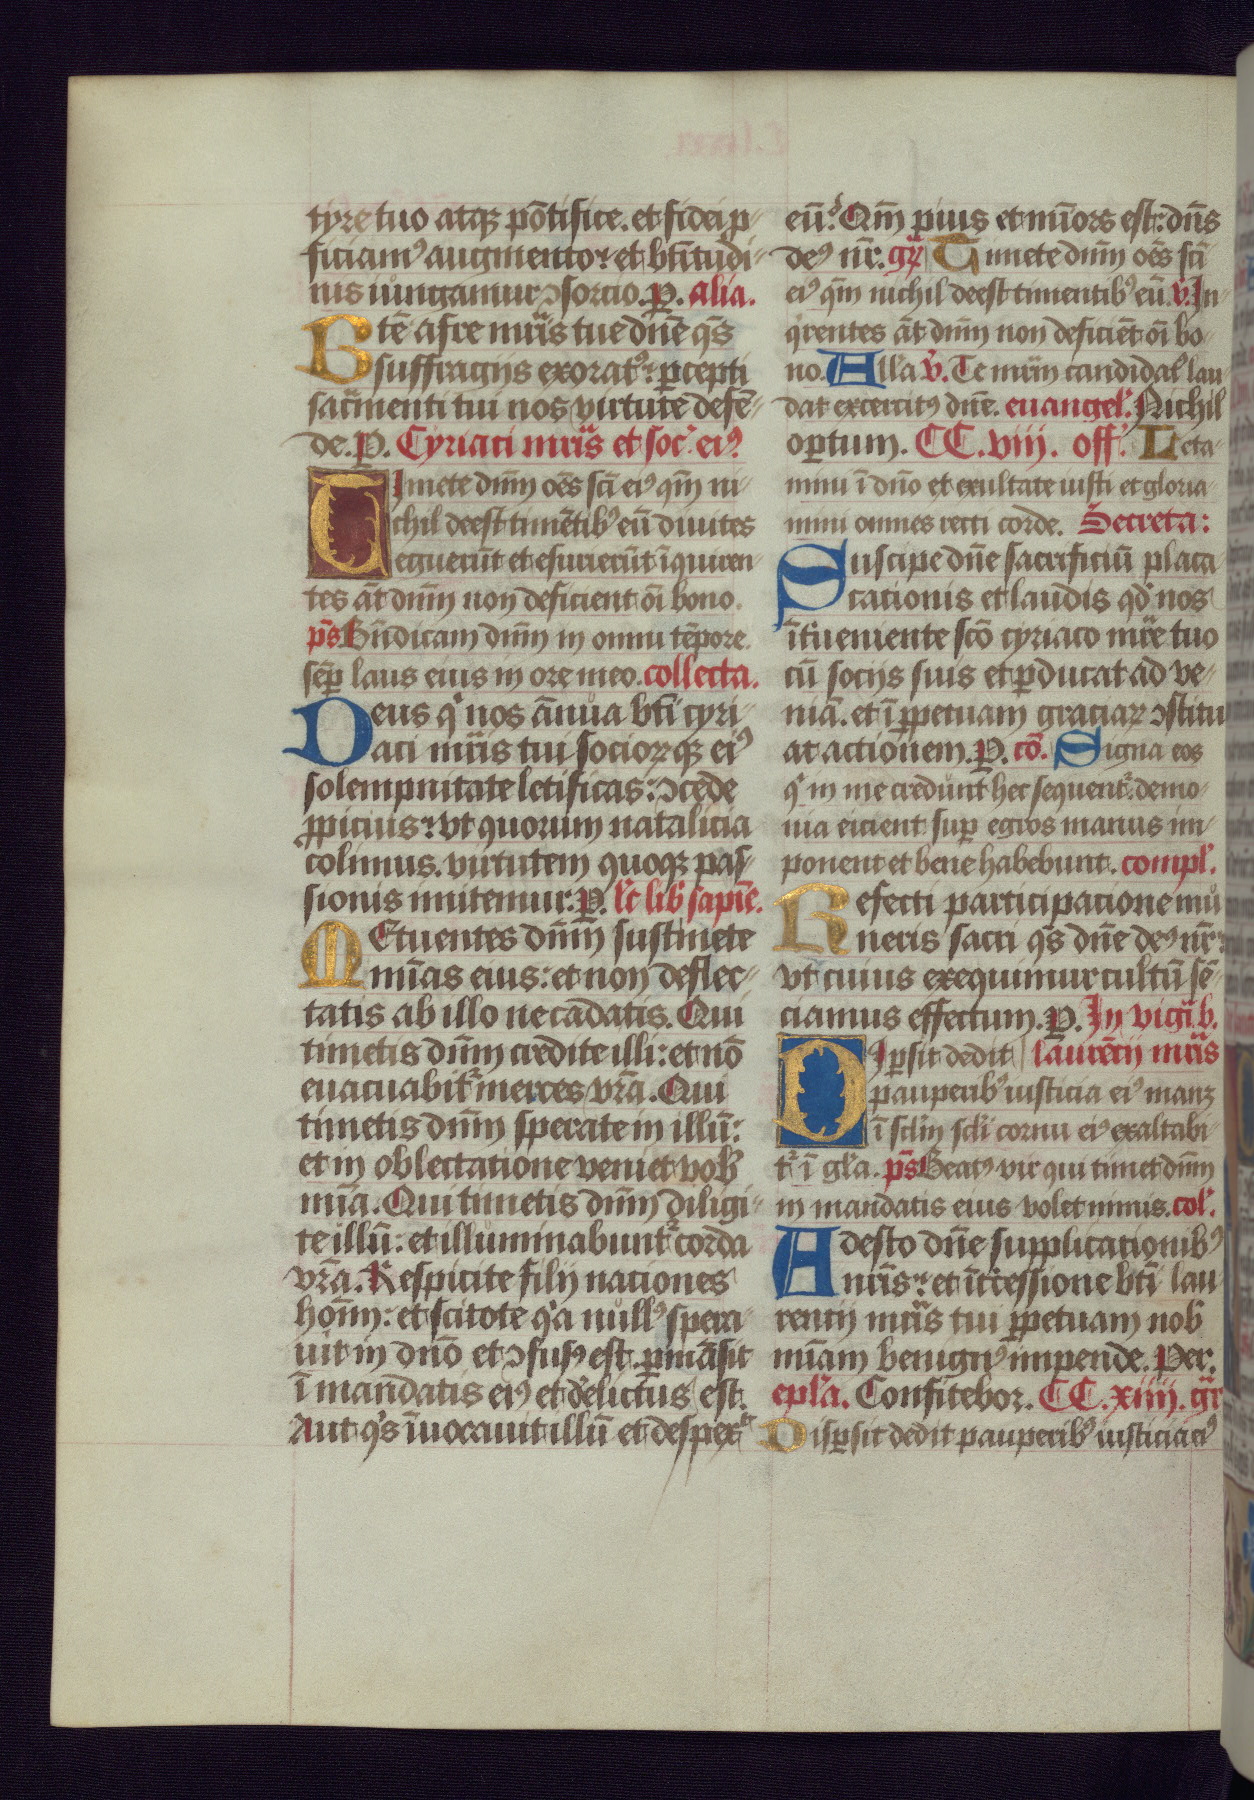 tyre tuo atqꝫ põtifice. et fidei p-
ficiamꝰ augmento: et btitudi-
nis iungamur ↄsorcio. P. alia.
Btẽ afre mr̃is tue dñe q̃s
suffragijs exoratꝰ: ꝑcepti
sac̃menti tui nos virtute defẽ-
de. P. Cyriaci mr̃is et soc̃ eiꝰ
Timete dñm oẽs sc̃i eiꝰ qm̃ ni-
chil deest timẽtibꝰ eũ diuites
eguerũt et esurierũt ĩquiren-
tes ãt dñm non deficient oĩ bono.
p̃s Bñdicam dñm in omni tẽpore.
sẽp laus eius in ore meo. collecta.
Deus qⁱ nos ãnua bt̃i cyri-
aci mr̃is tui sociorꝝqꝫ eiꝰ
solempnitate letificas: ↄcede
ꝓpicius: vt quorum natalicia
colimus. virtutem quoqꝫ pas-
sionis imitemur: P. lc̃t lib̃ sapiẽ.
MEtuentes dñm sustinete
mĩam eius: et non deflec-
tatis ab illo ne cadatis. Qui
timetis dñm credite illi: et nõ
euacuabit̃ merces vr̃a. Qui
timetis dñm sperate in illũ:
et in oblectatione veniet vob̃
mĩa. Qui timetis dñm diligi-
te illũ: et illuminabunt̃ corda
vr̃a. Respicite filij naciones
hom̃: et scitote qⁱa nullꝰ spera-
uit in dño et ↄfusꝰ est. ꝑmãsit
ĩ mandatis eiꝰ et delictus est.
Aut qⁱs ĩuocauit illũ et despex̃
eũ: Qm̃ pius et mĩors est: dñs
deꝰ nr̃. gr̃ Timete dñm oẽs sc̃i
eiꝰ qm̃ nichil deest timentibꝰ eũ. v̇. In-
q̃rentes ãt dñm non deficiẽt oĩ bo-
no. All̃a v̇. Te mr̃m candidat̃ lau-
dat excercitꝰ dñe. euangel̃. Nichil
oꝑtum. CC. viij. off̃. Leta-
mini ĩ dño et exultate iusti et gloria-
mini omnes recti corde. Secreta:
Suscipe dñe sacrificiũ placa-
cationis et laudis qd̃ nos
ĩt̃ueniente sc̃o cyriaco mr̃e tuo
cũ socijs suis et ꝑducat ad ve-
niã. et ĩ ꝑpetuam graciaꝝ ↄstitu
at actionem. P. cõ. Signa eos
qⁱ in me credunt hec sequent̃. demo-
nia eicient sup̃ egros manus im-
ponent et bene habebunt. compl̃.
Refecti participacione mu
neris sacri q̃s dñe deꝰ nr̃:
vt cuius exequimur cultũ sẽ-
ciamus effectum. P. In vigl̃i b.
Dispsit dedit laurẽcij mr̃is
pauperibꝰ iusticia eiꝰ manꝫ
ĩ sc̃lm sc̃li cornu eiꝰ exaltabi-
t̃ ĩ gl̃a. p̃s Beatꝰ vir qui timet dñm
in mandatis eius volet nimis. col̃.
Adesto dñe supplicationibꝰ
nr̃is: et ĩtcessione bt̃i lau-
rencij mr̃is tui ꝑpetuam nob̃
mĩam benignꝰ impende. Per.
epl̃a. Confitebor. CC. xiiij. gr̃
Disꝑsit dedit pauperibꝰ iusticia eiꝰ